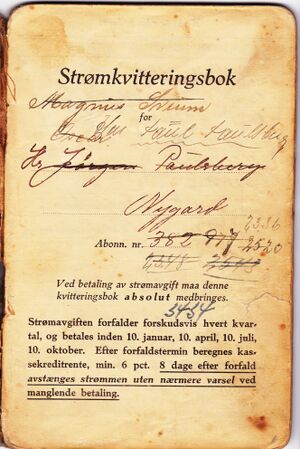 Strømkvitteringsbok
Magnus Sveum
for
Paul Paulsberg
Hr Jørgen Paulsberg
Nygard
2336
Abonn. nr. 382 917 2520
2348 2543
Ved betaling av strømavgift maa denne
kvitteringsbok absolut medbringes.
5454
Strømavgiften forfalder forskudsvis hvert kvar-
tal, og betales inden 10. januar, 10. april, 10. juli,
10. oktober. Efter forfaldstermin beregnes kas-
sekreditrente, min. 6 pct. 8 dage efter forfald
avstænges strømmen uten nærmere varsel ved
manglende betaling.